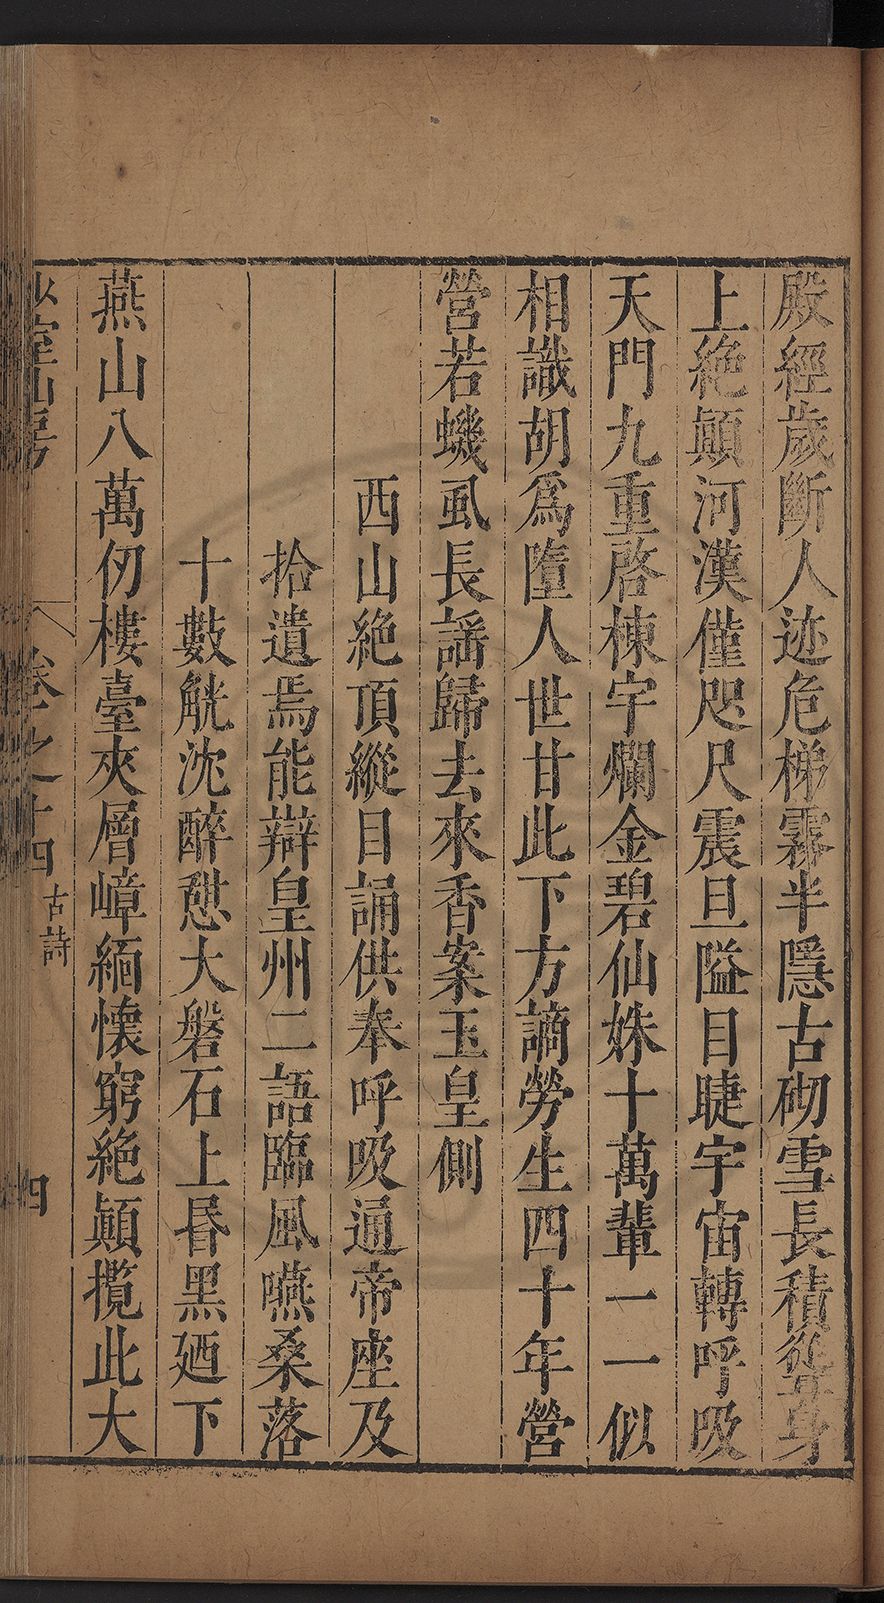 殿經歲斷人迹危梯霧半隱古砌雪長積聳身
上絶顛河漢僅咫尺震旦隘目睫宇宙轉呼吸
天門九重啓棟宇爛金碧仙姝十萬輩一一似
相識胡爲墮人世甘此下方謫勞生四十年營
營若蟣虱長謡歸去來香案玉皇側
西山絶頂縱目誦供奉呼吸通帝座及
拾遺焉能辯皇州二語臨風嚥桑落
十數觥沈醉憇大磐石上昏黑廼下
燕山八萬仞樓臺夾層嶂緬懷窮絶顛攬此大
少室山房
卷之十四
古詩
四